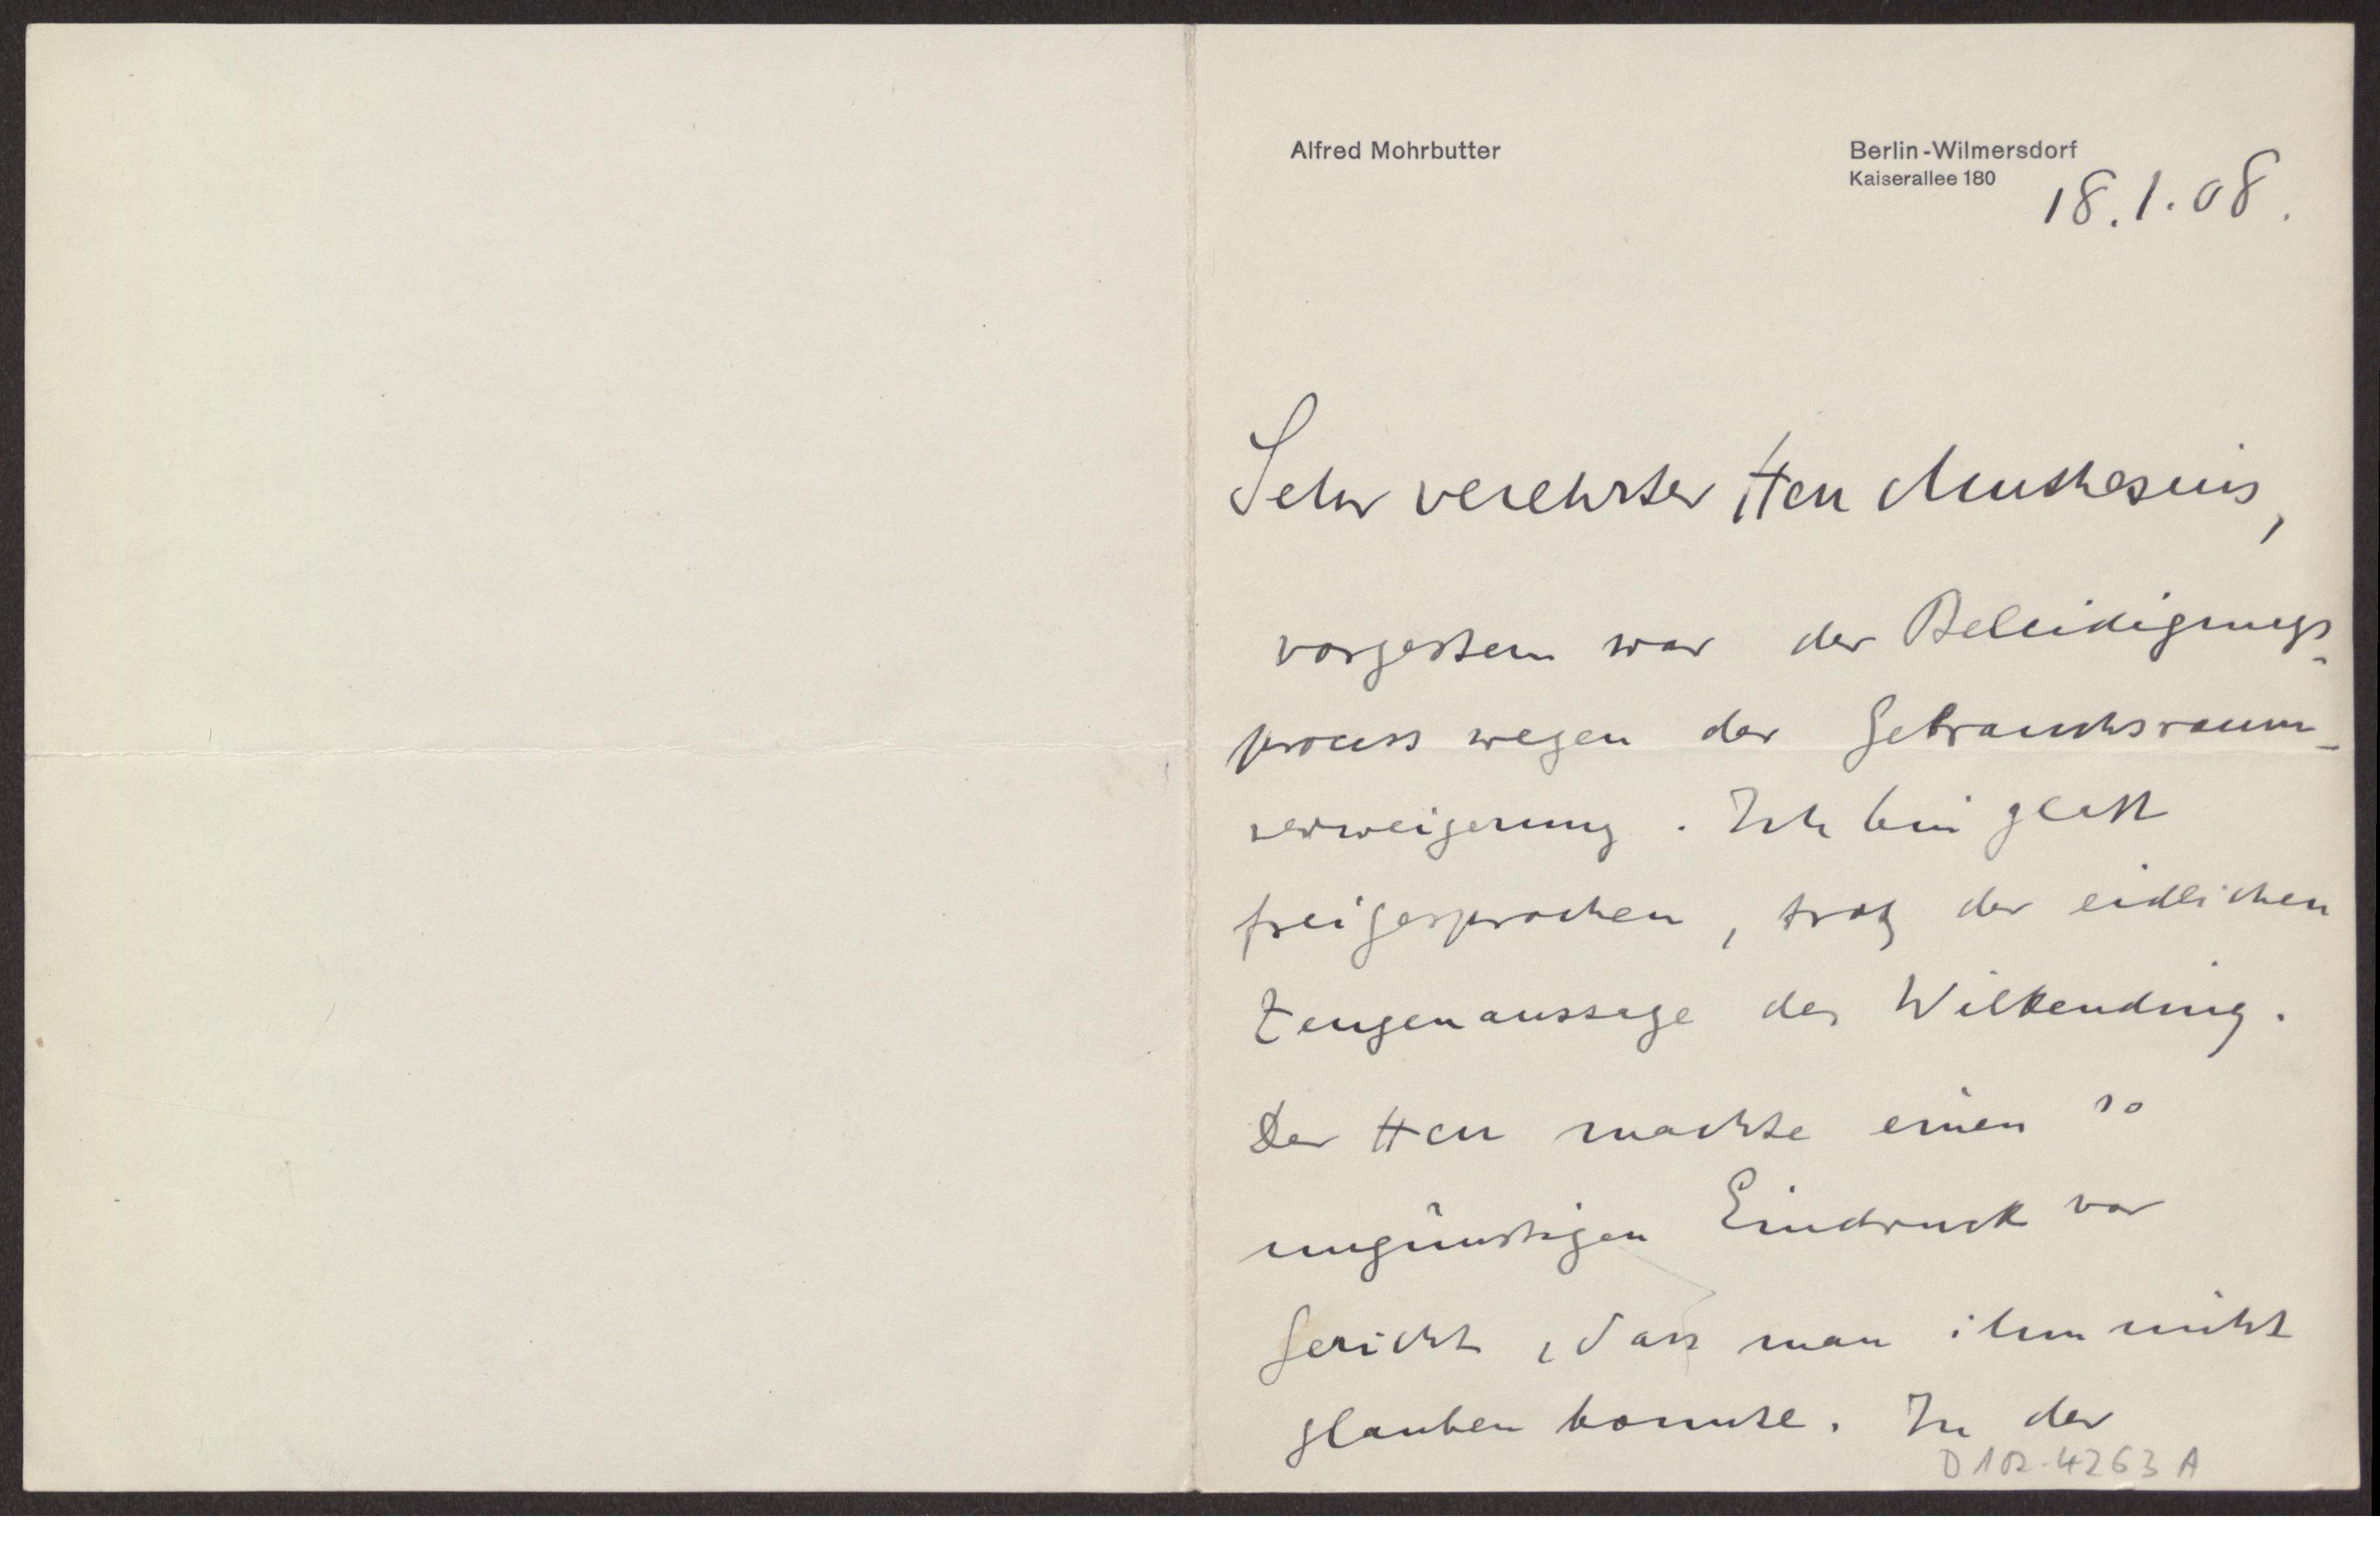 Alfred Mohrbutter
Berlin-Wilmersdorf
Kaiserallee 180
18.1.08.
Sehr verehrter Herr Muthesius,
vorgestern war der Beleidigungs-
process wegen der Gebrauchsraum-
verweigerung. Ich bin glatt
freigesprochen, trotz der eidlichen
Zeugenaussage des Wilkending.
Der Herr machte einen so
ungünstigen Eindruck vor
Gericht, dass man ihm nicht
glauben konnte. In der
D 102-4263 A